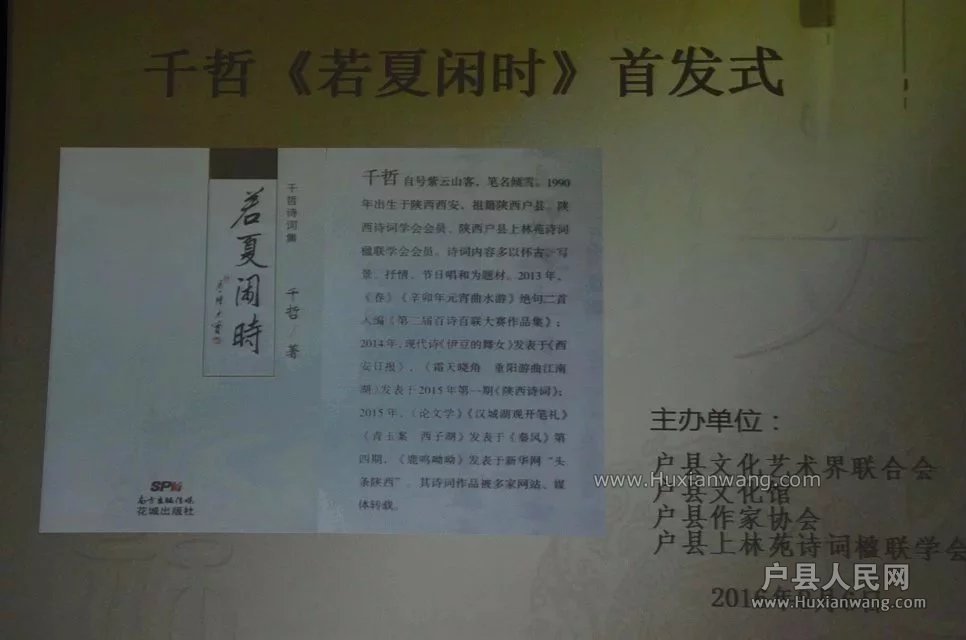 千哲《若夏闲时》首发式
若夏闲時
千哲诗词集
千哲/著
千哲 自号紫云山客，笔名倾雪。1990
年出生于陕西西安，祖籍陕西户县。陕
西诗词学会会员，陕西户县上林苑诗词
楹联学会会员。诗词内容多以怀古、写
景、抒情、节日唱和为题材。2013年，
《春》《辛卯年元宵曲水游》绝句二首
入编《第二届百诗百联大赛作品集》；
2014年，现代诗《伊豆的舞女》发表于《西
安日报》，《霜天晓角 重阳游曲江南
湖》发表于2015年第一期《陕西诗词》；
2015年，《论文学》《汉城湖观开笔礼》
《青玉案 西子湖》发表于《秦风》第
四期，《鹿鸣呦呦》发表于新华网“头
条陕西”。其诗词作品被多家网站、媒
体转载。
SPM
南方出版传媒
花城出版社
主办单位：
户县文化艺术界联合会
户县文化馆
户县作家协会
户县上林苑诗词楹联学会
2016年
www.Huxianwang.com
户县人民网
www.Huxianwang.com